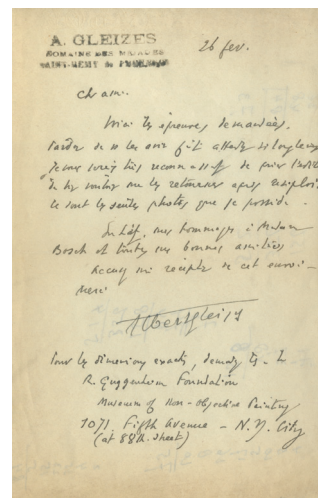 A. GLEIZES
DOMAINE DES
SAINT-REMY de PROVENCE
26 fev.
Cher ami.
Voici les épreuves demandées.
Pardon de vous les avoir fait attendre si longtemps
Je vous serais très reconnaissant de
de me les retourner après
ce sont les seules photos que je possède.
mes hommages à Madame
Bosch et toutes mes bonnes amitiés
Accusez moi réception de cet envoi-
merci
Albert Gleizes
Pour les dimensions exactes, demandez les - à
R. Guggenheim Foundation
Museum of Non-Objective Painting
1071. Fifth Avenue - N.Y. City
(at 88th. street)